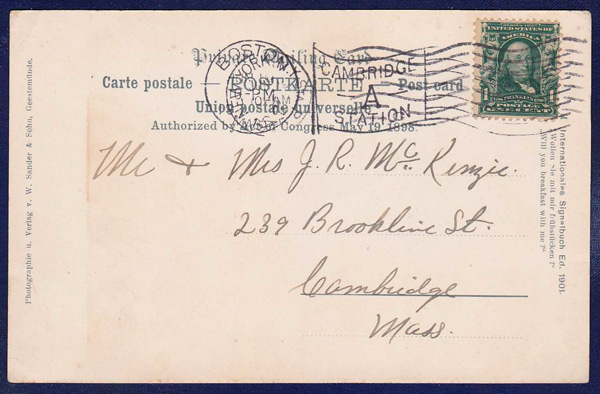 Private Mailing Card
Carte postale POSTKARTE Post card
Union postale universelle
Authorized by Act of Congress May 19, 1898.
BOSTON
MASS.
CAMBRIDGE
A
STATION
UNITED STATES OF AMERICA
1
Mr & Mrs J. R. McKenzie.
239 Brookline St.
Cambridge
Mass.
Photographie u. Verlag v. W. Sander & Sohn, Geestemünde.
Internationales Signalbuch Ed. 1901.
„Wollen Sie mit mir frühstücken?“
„Will you breakfast with me?“